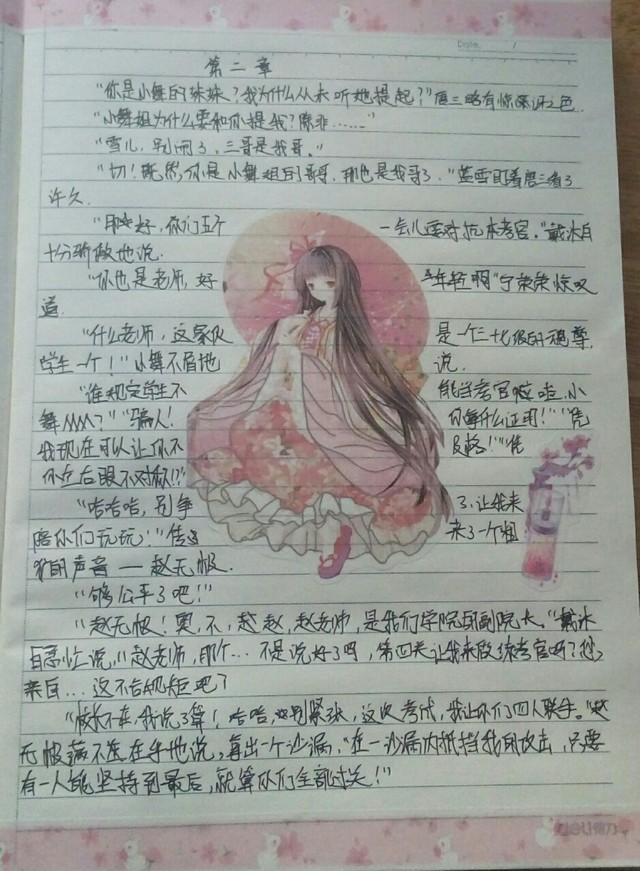 Date. /
第二章
"你是小舞的妹妹?我为什么从未听她提起?"唐三略有惊讶之色.
"小舞姐为什么要和你提我?除非……"
"雪儿,别闹了,三哥是我哥."
"切!既然你是小舞姐的哥哥,那也是我哥了."蓝雪盯着唐三看了
许久.
"那好,你们五个 一会儿要对抗本考官."戴沐白
十分骄傲地说.
"你也是老师,好 年轻啊"宁荣荣惊叹
道.
"什么老师,这家伙 是一个三十七级的魂尊,
学生一个!"小舞不屑地 说.
"谁规定学生不 能当考官啦啦,小
舞 ?""骗人! 你有什么证明!""凭
我现在可以让你不 及格!""凭
你左右眼不对称!?"
"哈哈哈,别争 了,让我来
陪你们玩玩!"传 来了一个粗
犷的声音——赵无极.
"够公平了吧!"
"赵无极!奥,不,赵赵,赵老师,是我们学院的副院长."戴沐
白急忙说,"赵老师,那个…不是说好了吗,第四关让我来做 考官吗?您
亲自…这不合规矩吧?
"校长不在,我说了算!哈哈,别紧张,这次考试,我让你们四人联手."赵
无极满不在乎地说,拿出一个沙漏,"在一沙漏内抵挡我的攻击,只要
有一人能坚持到最后,就算你们全部过关!"
deli得力